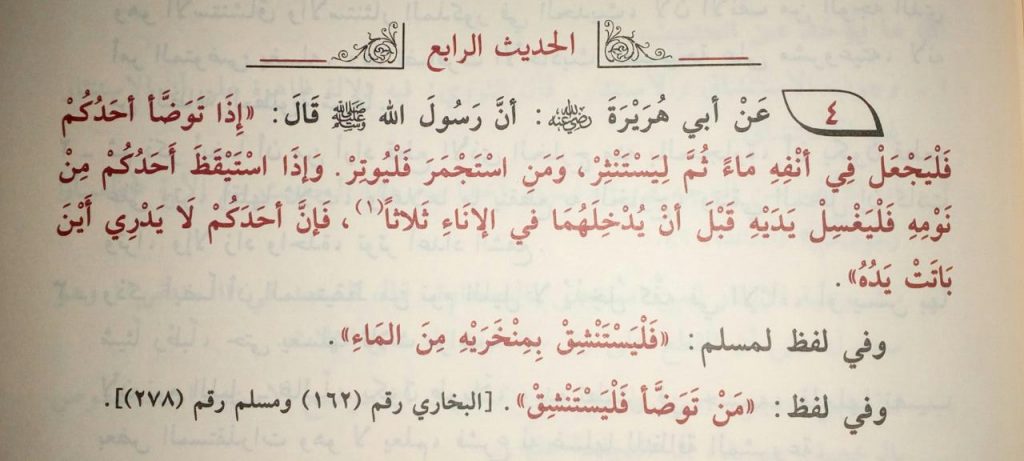 الحديث الرابع
٤ عَنْ أبي هُرَيْرَةَ رضي الله عنه: أنَّ رَسُولَ الله ﷺ قَالَ: «إِذَا تَوَضَّأ أحَدُكُمْ
فَلْيَجعَلْ فِي أنْفه مَاءً ثُمَّ لِيَسْتَنْثِرْ، وَمَنِ اسْتَجْمَرَ فَلْيُوتِرْ. وَإِذَا اسْتَيْقَظَ أَحَدُكُمْ مِنْ
نَوْمِهِ فَلْيَغْسِلْ يَدَيْهِ قَبْلَ أنْ يُدْخِلَهُمَا في الإنَاءِ ثَلاثاً(١)، فَإنَّ أحَدَكُمْ لَا يَدْرِي أَيْنَ
بَاتَتْ يَدُهُ».
وفي لفظ لمسلم: «فَلْيَسْتَنْشِقْ بِمِنْخَرَيْهِ مِنَ المَاءِ».
وفي لفظ: «مَنْ تَوَضَّأ فَلْيَسْتَنْشِقْ». [البخاري رقم (١٦٢) ومسلم رقم (٢٧٨)].